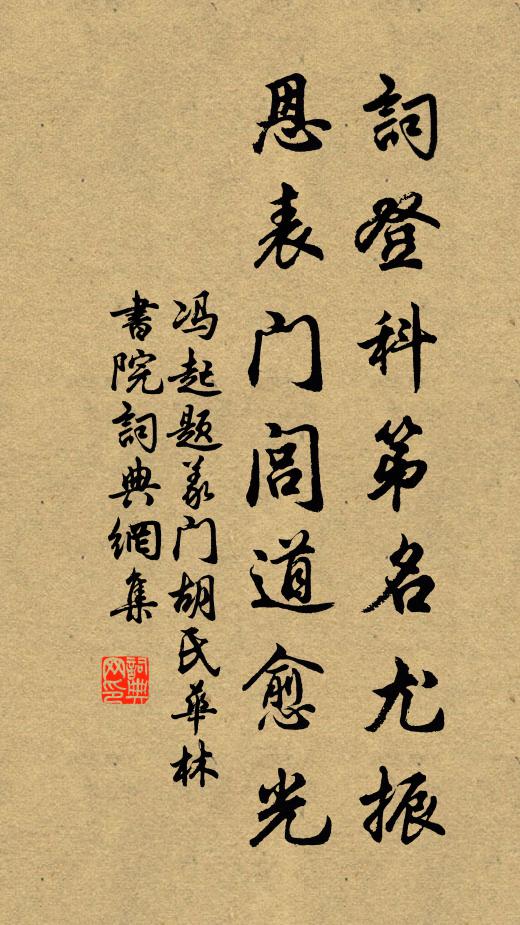 詞登科第名尤振
恩表门闾道愈光
冯起题义门胡氏华林
書院詞典網集
詞典网印